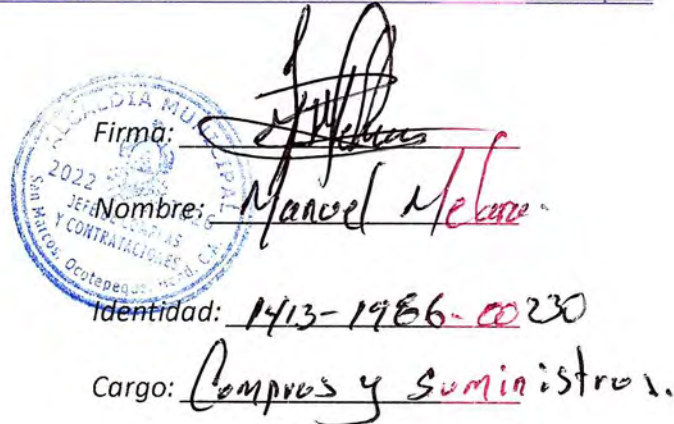 ALCALDIA MUNICIPAL
2022
JEFE COMPRAS
Y CONTRATACIONES
San Marcos, Ocotepeque, Hond, C.A.
Firma:
Nombre: Manuel Melara.
Identidad: 1413-1986-00230
Cargo: Compras y Suministros.